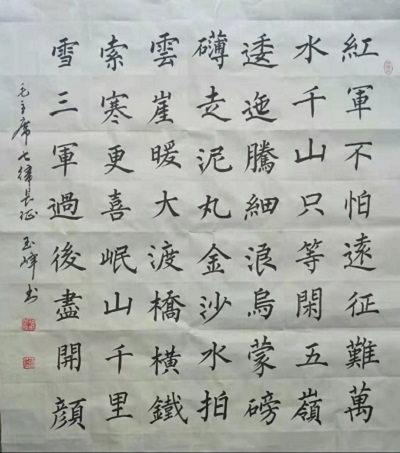 紅軍不怕遠征難萬
水千山只等閑五嶺
逶迤騰細浪烏蒙磅
礴走泥丸金沙水拍
雲崖暖大渡橋橫鐵
索寒更喜岷山千里
雪三軍過後盡開顏
毛主席七律长征 玉峰书